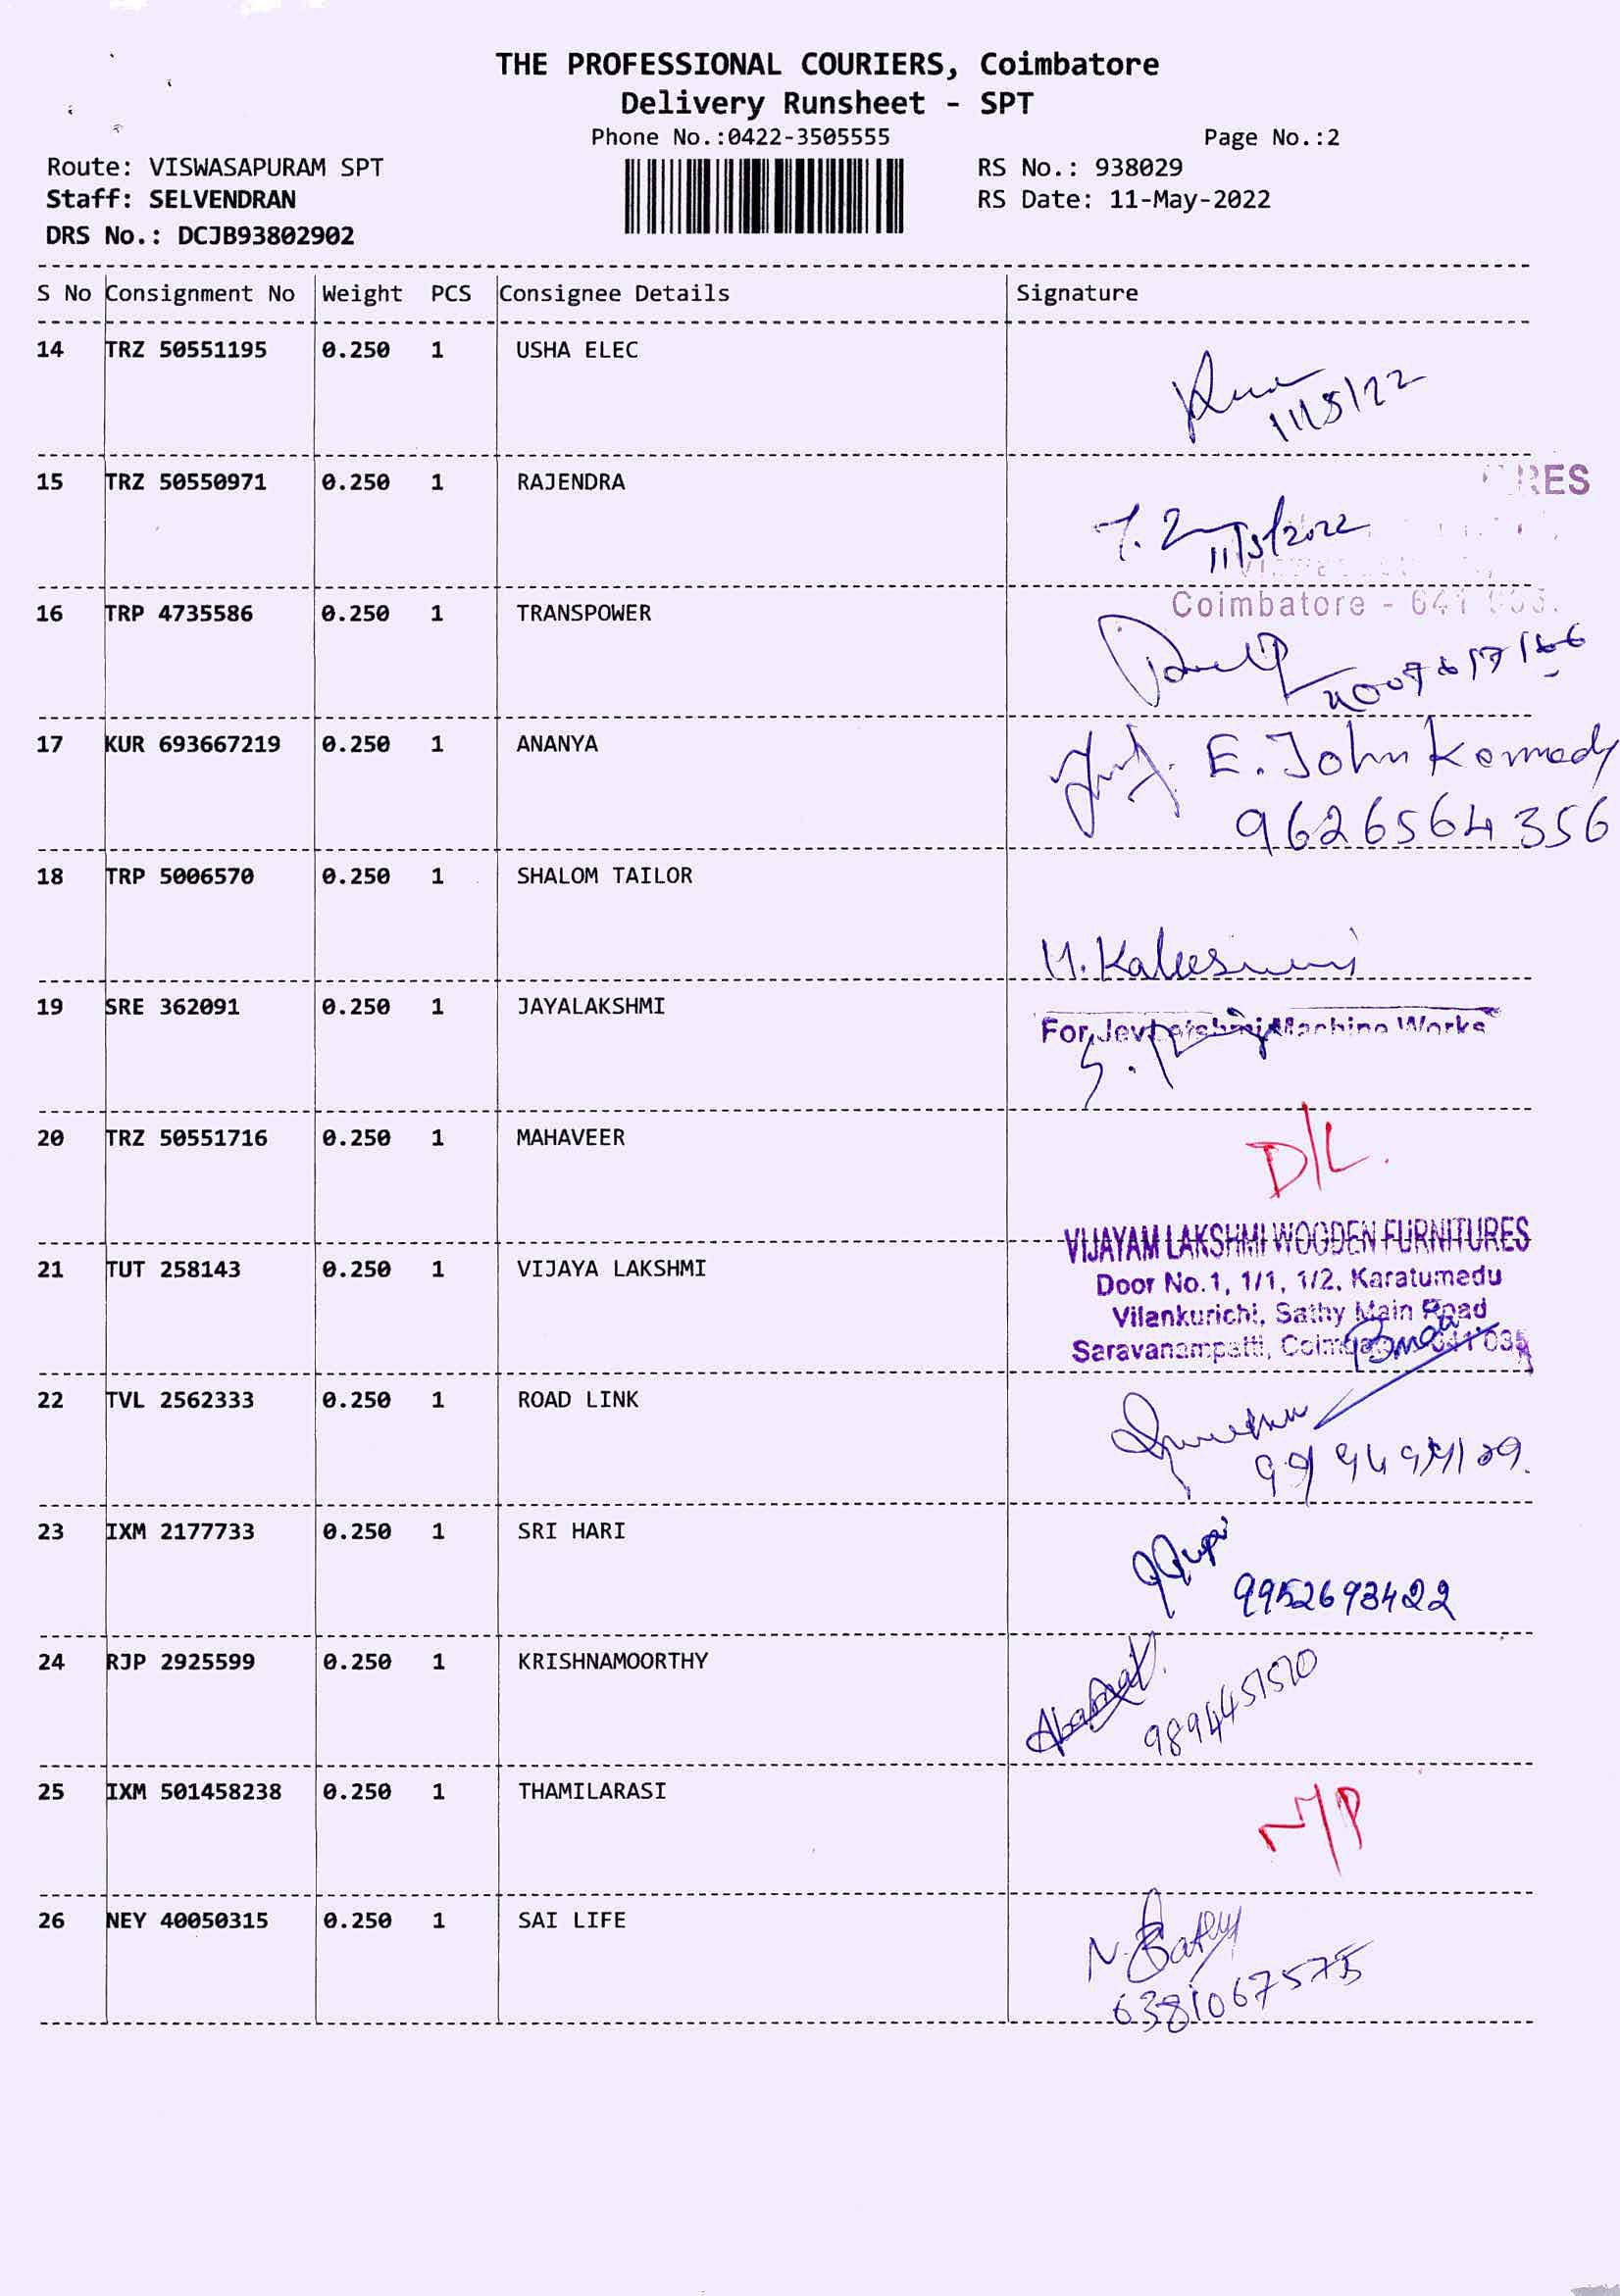 THE PROFESSIONAL COURIERS, Coimbatore
Delivery Runsheet - SPT
Phone No.:0422-3505555 Page No.:2
Route: VISWASAPURAM SPT RS No.: 938029
Staff: SELVENDRAN RS Date: 11-May-2022
DRS No.: DCJB93802902
S No Consignment No Weight PCS Consignee Details Signature
14 TRZ 50551195 0.250 1 USHA ELEC
11/5/22
15 TRZ 50550971 0.250 1 RAJENDRA RES
11/5/2022
Coimbatore - 641
16 TRP 4735586 0.250 1 TRANSPOWER
17 KUR 693667219 0.250 1 ANANYA E. John Kennady
9626564356
18 TRP 5006570 0.250 1 SHALOM TAILOR
19 SRE 362091 0.250 1 JAYALAKSHMI
For Machine Works
20 TRZ 50551716 0.250 1 MAHAVEER D/L.
VIJAYAM LAKSHMI WOODEN FURNITURES
21 TUT 258143 0.250 1 VIJAYA LAKSHMI Door No.1, 1/1, 1/2, Karatumedu
Vilankurichi, Sathy Main Road
Saravanampatti, 035
22 TVL 2562333 0.250 1 ROAD LINK
23 IXM 2177733 0.250 1 SRI HARI
9952693422
24 RJP 2925599 0.250 1 KRISHNAMOORTHY
9894451510
25 IXM 501458238 0.250 1 THAMILARASI N/P
26 NEY 40050315 0.250 1 SAI LIFE
6381067575